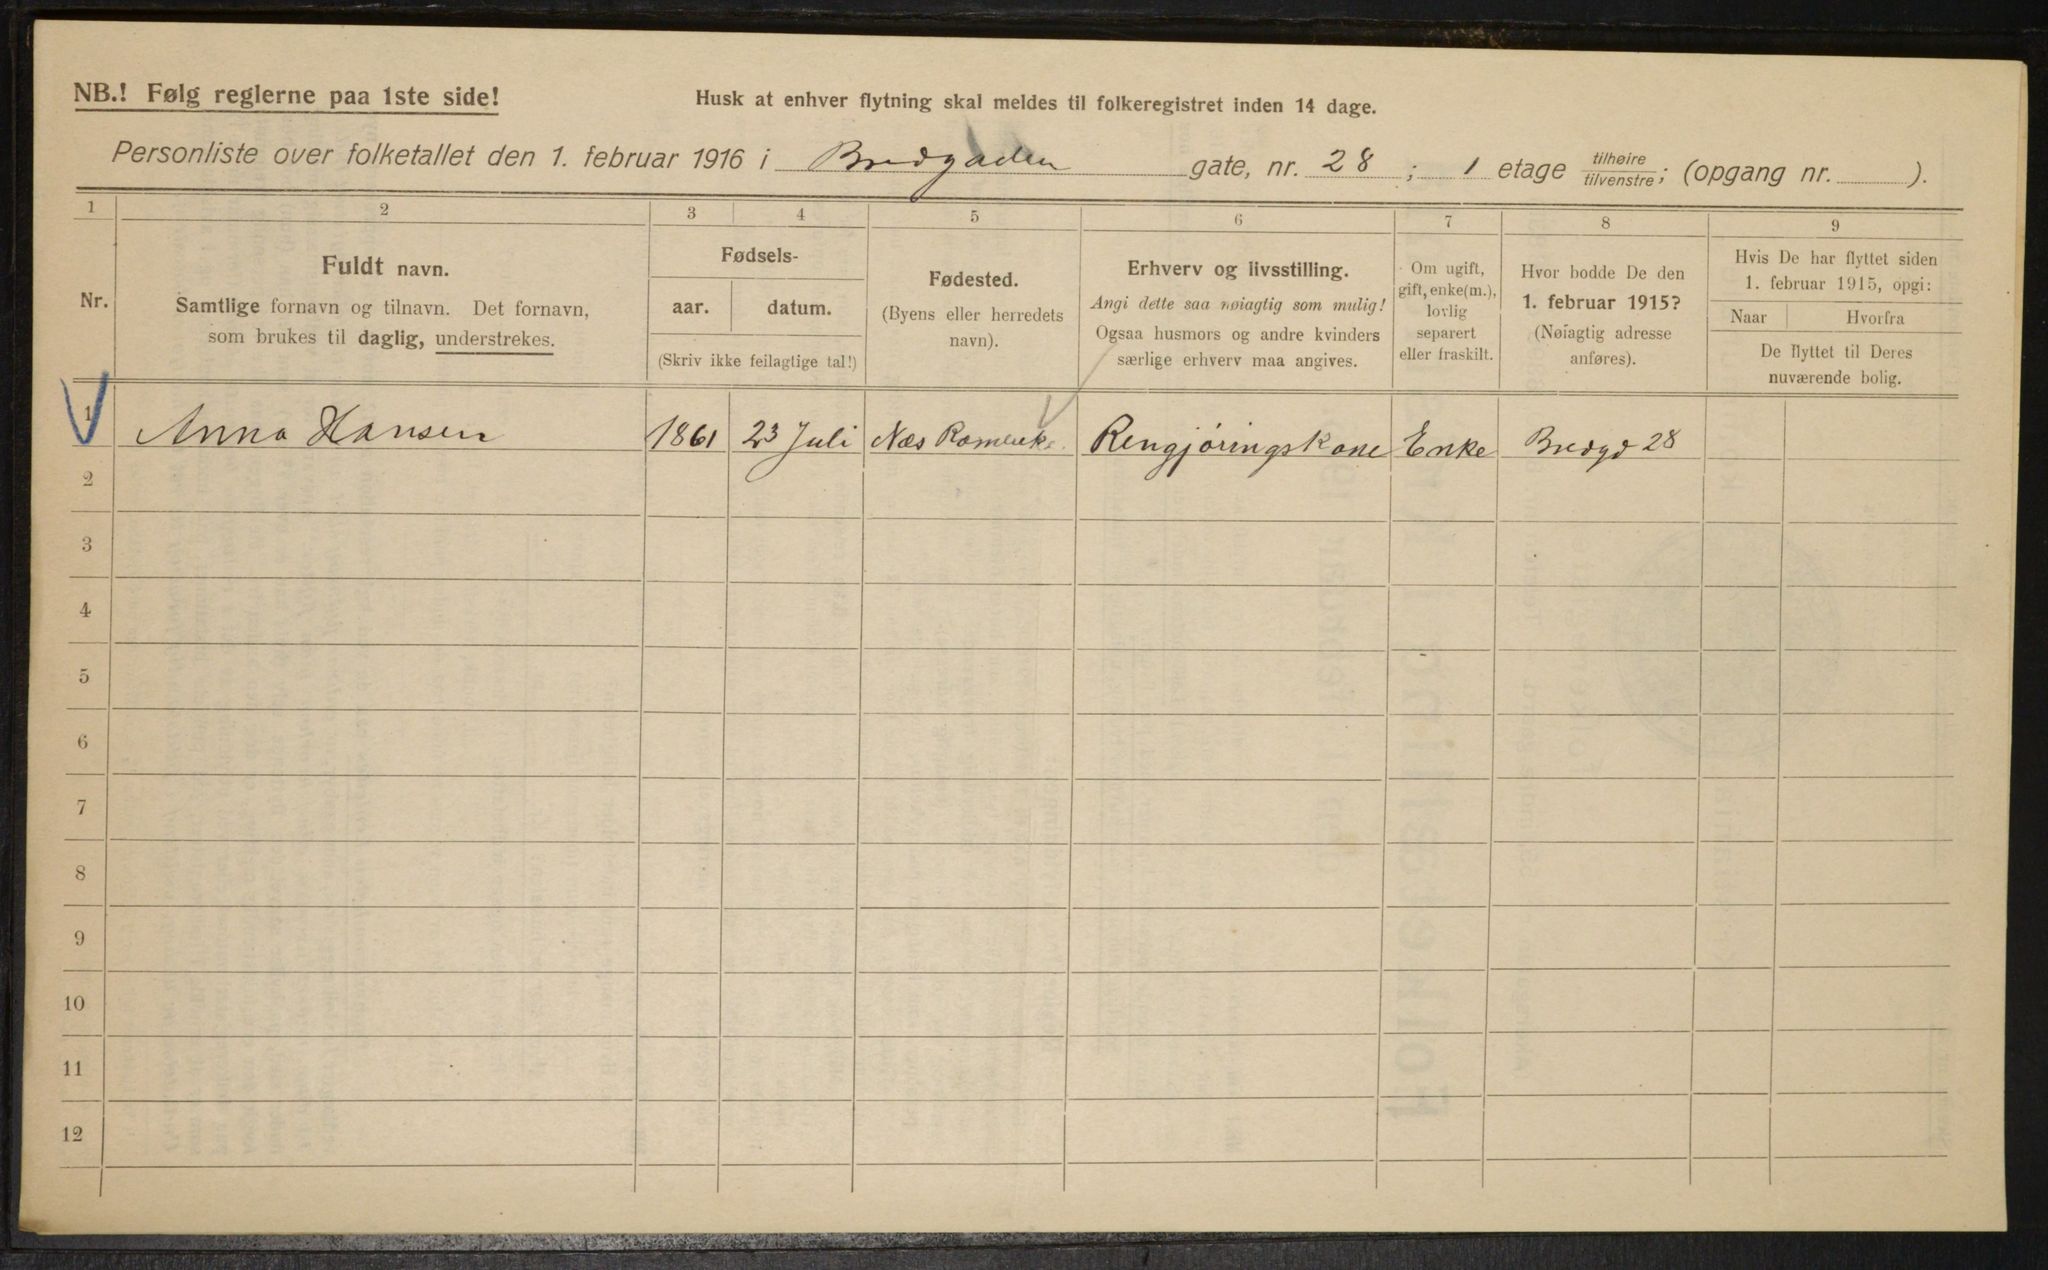 NB.! Følg reglerne paa 1ste side!
Husk at enhver flytning skal meldes til folkeregistret inden 14 dage.
Personliste over folketallet den 1. februar 1916 i Bredgaden gate, nr. 28 ; 1 etage tilhøire tilvenstre ; (opgang nr. ).
1 2 3 4 5 6 7 8 9
Nr.
Fuldt navn.
Samtlige fornavn og tilnavn. Det fornavn,
som brukes til daglig, understrekes.
Fødsels-
aar. datum.
(Skriv ikke feilagtige tal!)
Fødested.
(Byens eller herredets
navn).
Erhverv og livsstilling.
Angi dette saa nøiagtig som mulig!
Ogsaa husmors og andre kvinders
særlige erhverv maa angives.
Om ugift,
gift, enke(m.),
lovlig
separert
eller fraskilt.
Hvor bodde De den
1. februar 1915?
(Nøiagtig adresse
anføres).
Hvis De har flyttet siden
1. februar 1915, opgi:
Naar Hvorfra
De flyttet til Deres
nuværende bolig.
1 Anna Hansen 1861 23 Juli Næs Rengjøringskone Enke Bredgd 28
2
3
4
5
6
7
8
9
10
11
12